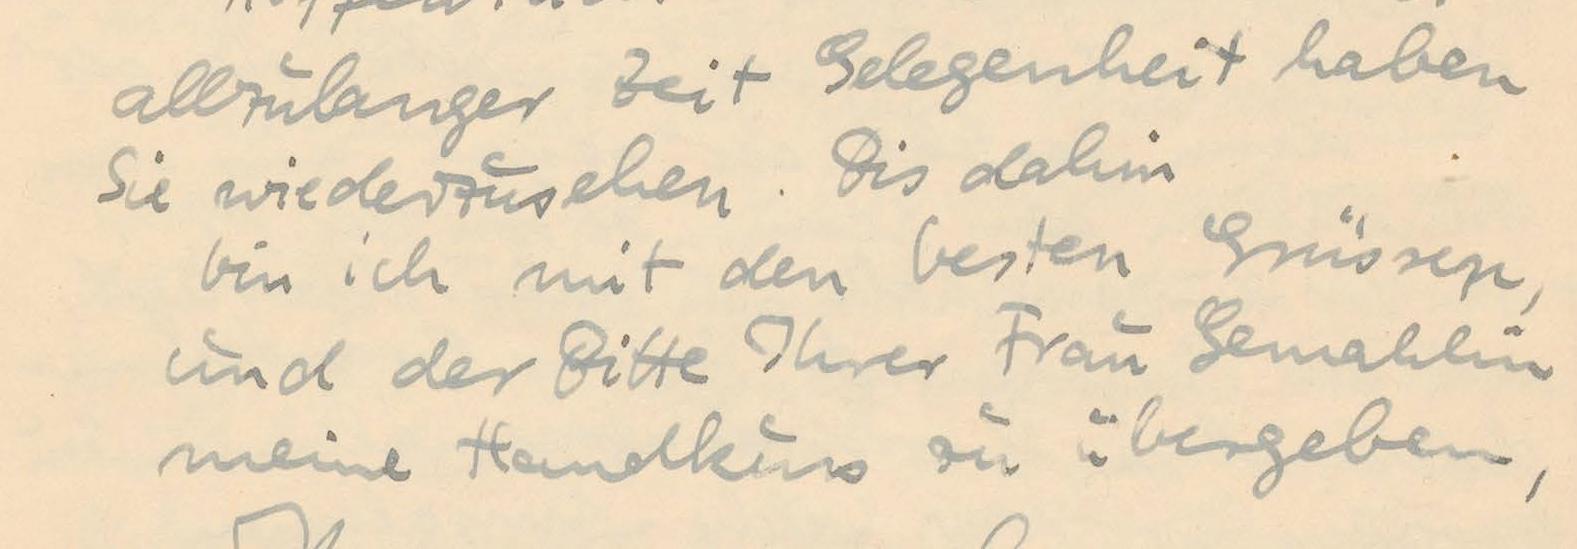 allzulanger Zeit Gelegenheit haben
Sie wiederzusehen. Bis dahin
bin ich mit den besten Grüssen,
und der Bitte Ihrer Frau Gemahlin
meine Handkuss zu übergeben,